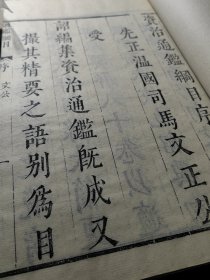 資治通鑑綱目序
先正温國司馬文正公
受
詔編集資治通鑑既成又
撮其精要之語别為目